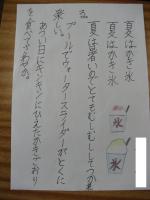 夏はかき氷
夏はかき氷
夏は暑いのでとてもむしむししてつかれ
る。
プールでウォータースライダーがとくに
楽しい。
あつい日にキンキンにひえたかきごおり
を食べてさわやか。
氷
氷